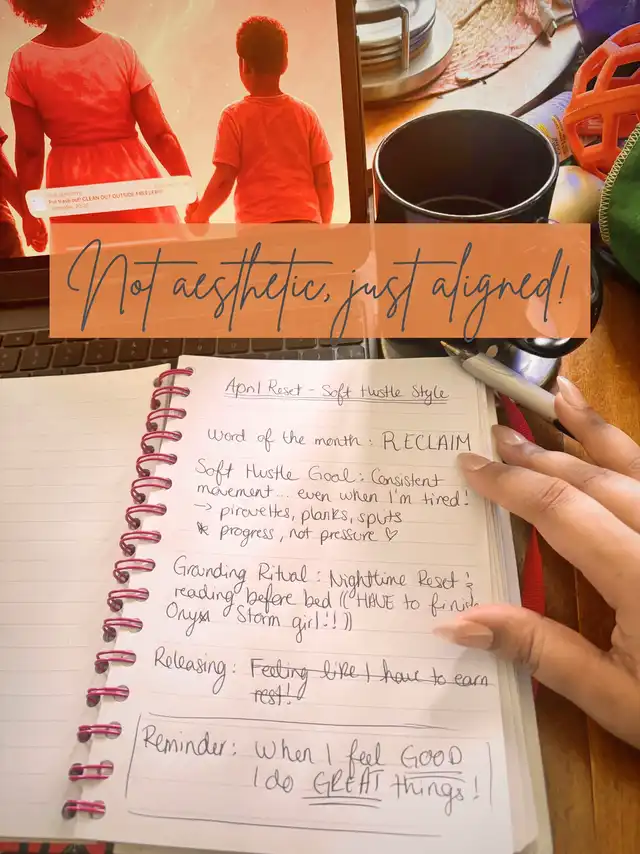 Put trash out! CLEAN OUT OUTSIDE
Not aesthetic, just aligned!
April Reset - Soft Hustle Style
Word of the month : RECLAIM
Soft Hustle Goal : Consistent
movement... even when I'm tired!
→ pirouettes, planks, splits
* progress, not pressure ♡
Grounding Ritual : Nighttime Reset &
reading before bed ((HAVE to finish
Onyx Storm girl!!))
Releasing : Feeling like I have to earn
rest!
Reminder : When I feel GOOD
I do GREAT things!